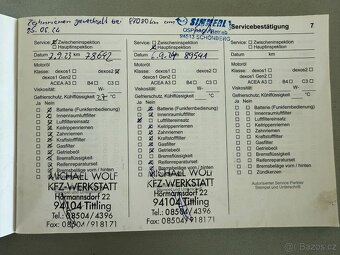 bei 87070 km
25.06.24
SIMMERL
94513 SCHÖNBERG
Servicebestätigung 7
Service: Zwischeninspektion
Hauptinspektion
Datum 2.9.23 km 78692
Motoröl
Klasse: dexos1 dexos2
dexos1 Gen2
ACEA A3 B4 C3
Viskosität: W-
Datum, Kühlflüssigkeit
Ja Nein
Batterie (Funkfernbedienung)
Innenraumluftfilter
Luftfiltereinsatz
Keilrippenriemen
Zahnriemen
Kraftstofffilter
Getriebeöl
Bremsflüssigkeit
Reifenreparaturset
Bremsbeläge vorn / hinten
MICHAEL WOLF
KFZ-WERKSTATT
Hörmannsdorf 22
94104 Tittling
Tel.: 08504/4396
Fax: 08504/918171
Service: Zwischeninspektion
Hauptinspektion
Datum km 89541
Motoröl
Klasse: dexos1 dexos2
dexos1 Gen2
ACEA A3 B4 C3
Viskosität: W-
Datum, Kühlflüssigkeit
Ja Nein
Batterie (Funkfernbedienung)
Innenraumluftfilter
Luftfiltereinsatz
Keilrippenriemen
Zahnriemen
Kraftstofffilter
Getriebeöl
Bremsflüssigkeit
Reifenreparaturset
Bremsbeläge vorn / hinten
MICHAEL WOLF
KFZ-WERKSTATT
Hörmannsdorf 22
94104 Tittling
Tel.: 08504/4396
Fax: 08504/918171
Service: Zwischeninspektion
Hauptinspektion
Datum km
Motoröl
Klasse: dexos1 dexos2
dexos1 Gen2
ACEA A3 B4 C3
Viskosität: W-
Datum, Kühlflüssigkeit
Ja Nein
Batterie (Funkfernbedienung)
Innenraumluftfilter
Luftfiltereinsatz
Keilrippenriemen
Zahnriemen
Kraftstofffilter
Getriebeöl
Bremsflüssigkeit
Reifenreparaturset
Bremsbeläge vorn / hinten
Zündkerzen
Autorisierter Service Partner
Stempel und Unterschrift